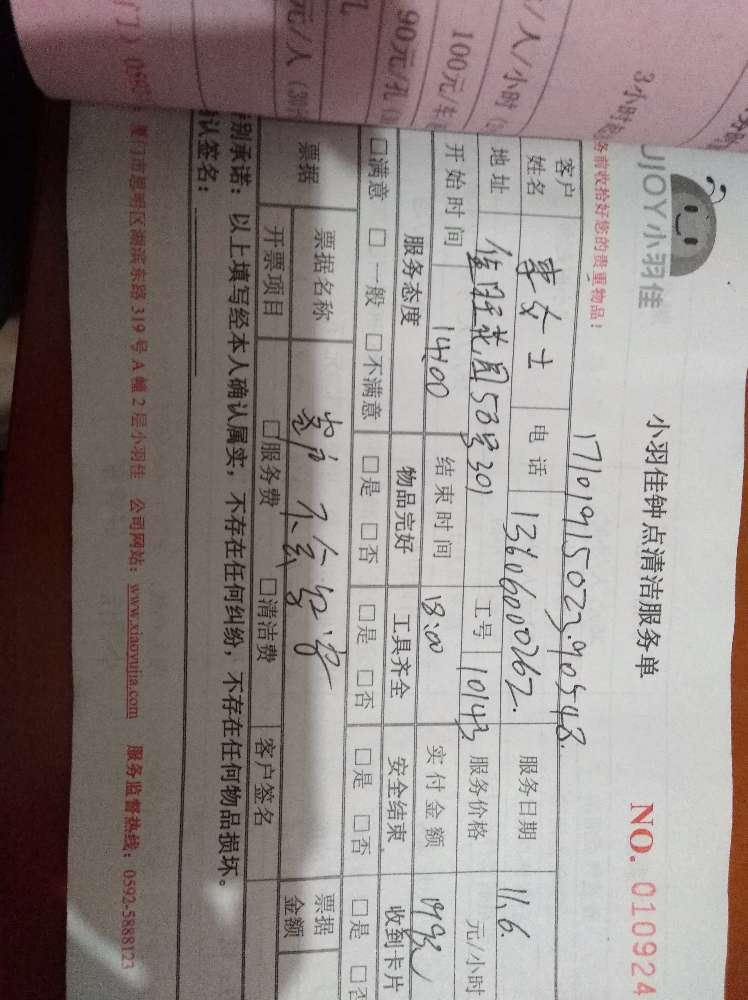 元/人(3小时
90元/孔
100元/车
/人/小时
3小时
JJOY小羽佳
小羽佳钟点清洁服务单
NO. 010924
务前收拾好您的贵重物品!
17101915023.90548.
客户姓名 女士 电话 13606000262. 服务日期 11.6.
地址 佳旺花园58号301 工号 10143 服务价格 元/小时
开始时间 14:00 结束时间 18:00 实付金额
服务态度 物品完好 工具齐全 安全结束 收到卡片
□满意 □一般 □不满意 □是 □否 □是 □否 □是 □否 □是 □否
票据 票据名称 客户不会写字 票据金额
开票项目 □服务费 □清洁费 客户签名
别承诺:以上填写经本人确认属实,不存在任何纠纷,不存在任何物品损坏。
认签名:
厦门市思明区湖滨东路319号A幢2层小羽佳 公司网站:www.xiaoyujia.com 服务监督热线:0592-5888123